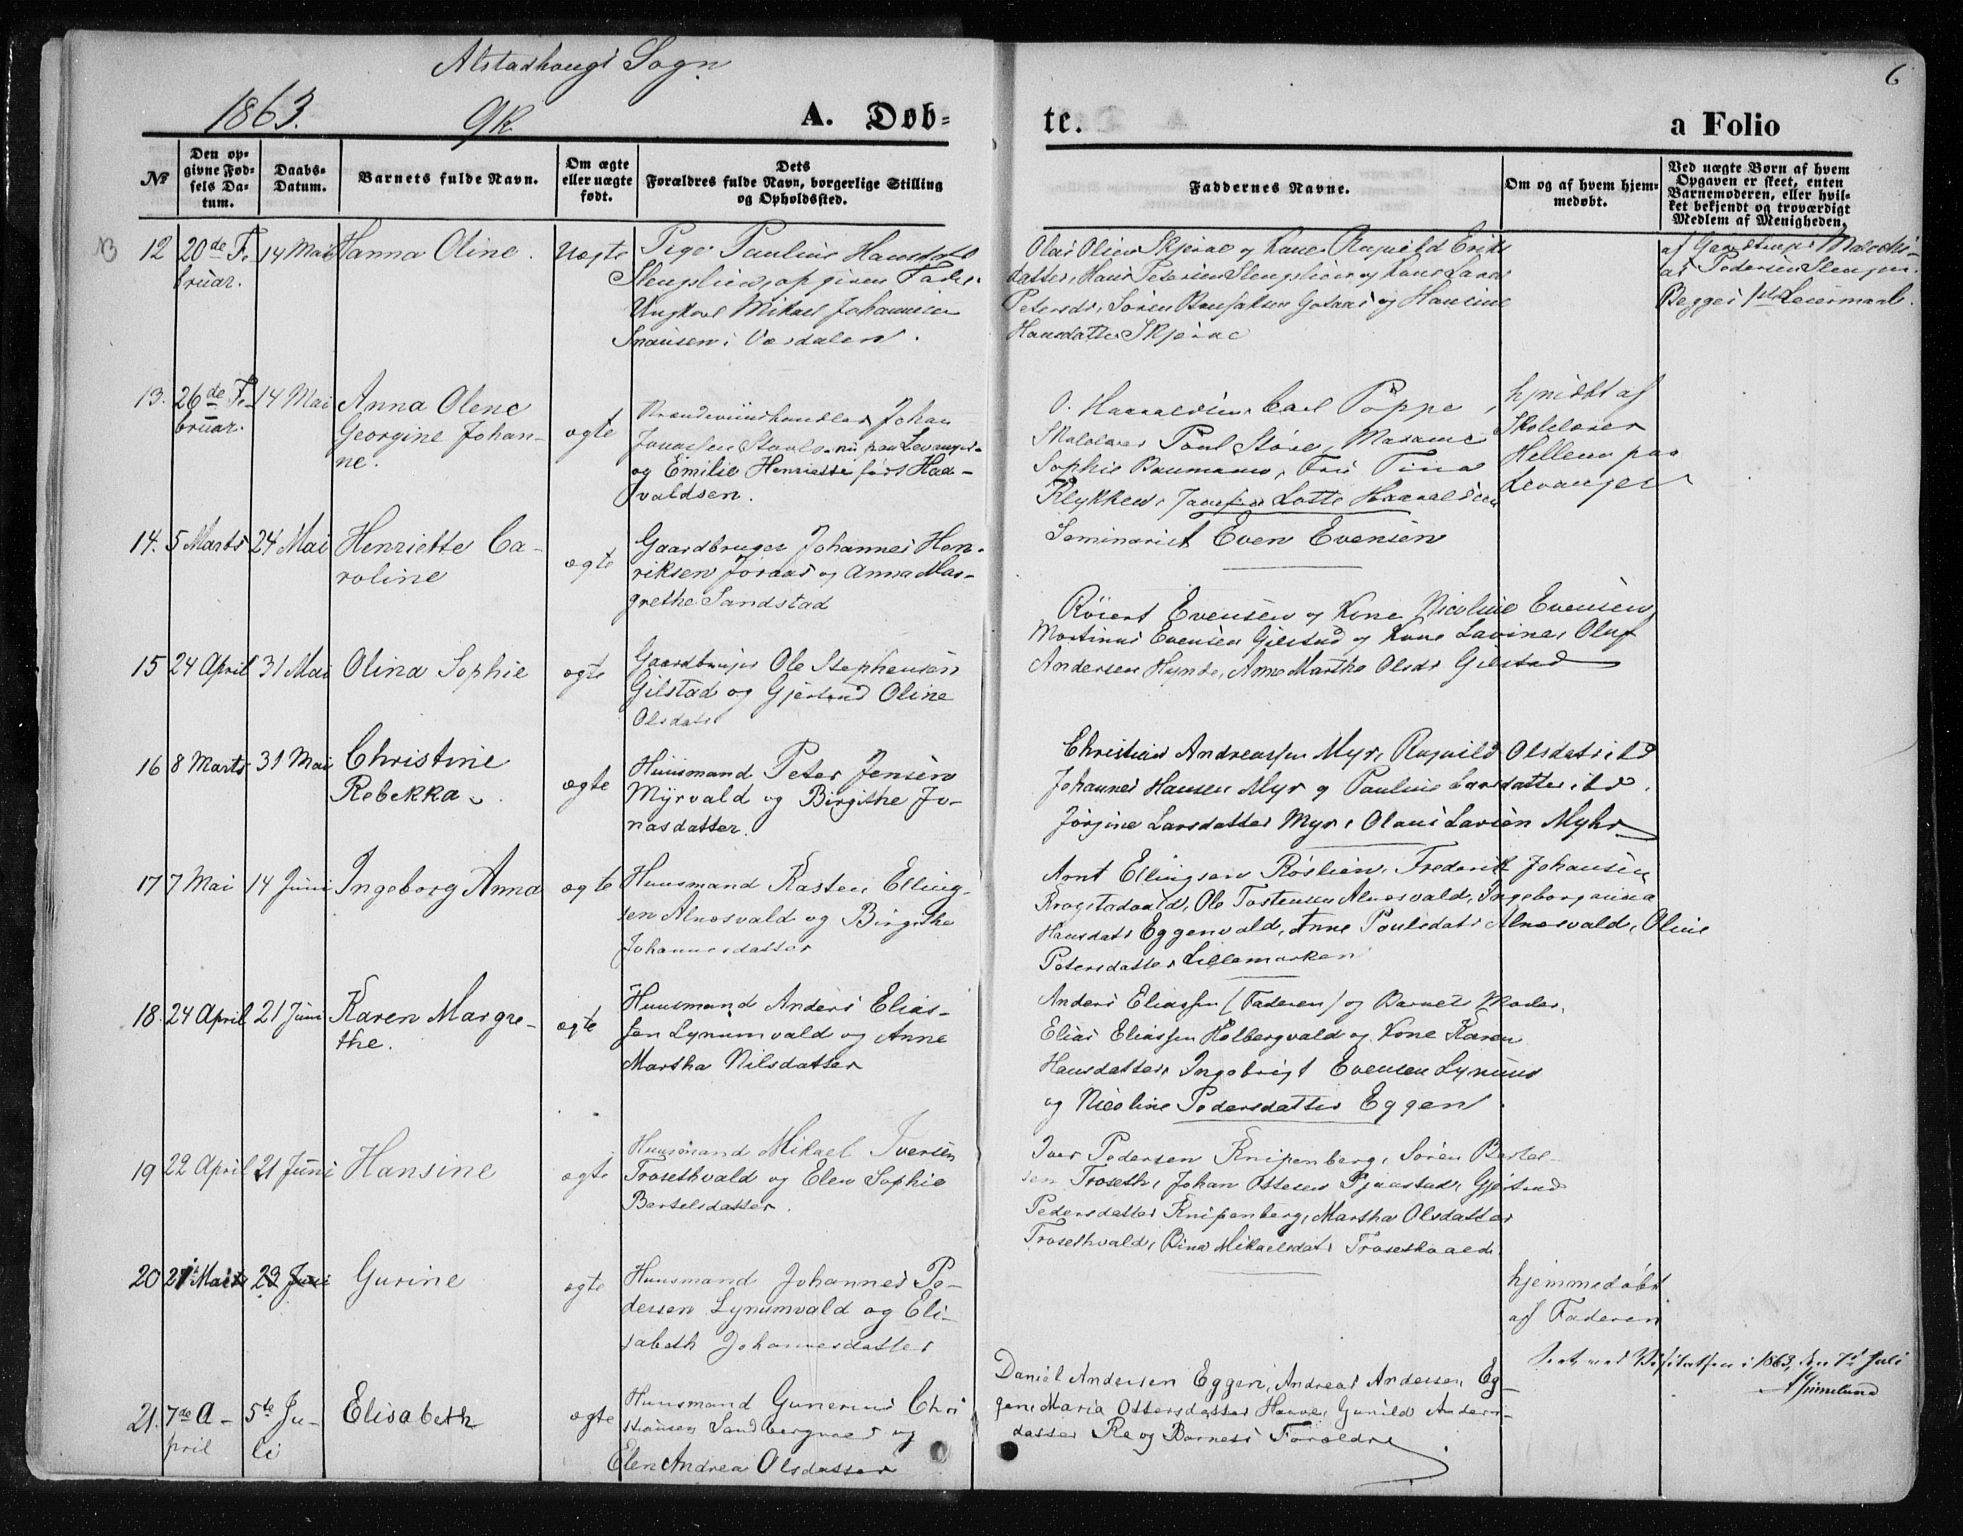 Alstadhougs Sogn
6
1863. QK. A. Døb=
te. a Folio
No
Den op-
givne Fød-
sels Da-
tum.
Daabs-
Datum.
Barnets fulde Navn.
Om ægte
eller uægte
født.
Dets
Forældres fulde Navn, borgerlige Stilling
og Opholdssted.
Faddernes Navne.
Om og af hvem hjem-
medøbt.
Ved uægte Børn af hvem
Opgaven er skeet, enten
Barnemoderen, eller hvil-
ket bekjendt og troværdigt
Medlem af Menigheden.
12 20de Fe-
bruar. 14 Mai Hanna Oline. Uægte
Pige Pauline
opgiven Fader
Ungkarl Mikael Johannesen
i Værdalen.
Olaus Olsen Skjerve og Kone Ragnild Eriks
datter, Hans Petersen og Kone
Petersdr, Søren og Hansine
Hansdatter Skjerve
Pedersen
Begges 1ste Leiermaal.
13. 26de Fe-
bruar. 14 Mai Anna Olene
Georgine Johan-
ne. ægte
Johan
nu paa Levanger
og Emilie Henriette født Haa-
valdsen.
O. Haavaldsen, Carl Poppe,
Skolelærer Poul Støre, Madame
Sophie Baumann, Frk Tina
Klykken, Lotte Haavaldsen
hjmdbt af
Skolelærer
Hellem paa
Levanger
14. 5 Marts 24 Mai Henriette Ca-
roline ægte
Gaardbruger Johannes Hen-
riksen og Anna Mar-
grethe Sandstad
Seminarist Even Evensen
15 24 April 31 Mai Olina Sophie ægte
Gaardbruger Ole Stephensen
Gilstad og Gjertrud Oline
Olsdatr
Evensen og Kone Nicoline Evensen
Martinus Evensen Gilstad og Kone Lavine, Oluf
Andersen Hynde, Anne Martha Olsdr Gilstad
16 8 Marts 31 Mai Christine
Rebekka. ægte
Huusmand Peter Jensen
Myrvald og Birgithe Jo-
nasdatter.
Christian Andreassen Myr, Ragnild Olsdatr ibd
Johannes Hansen Myr og Pauline Larsdatter ibd.
Jørgine Larsdatter Myr, Olaus Larsen Myhr
17 7 Mai 14 Juni Ingeborg Anna ægte
Huusmand Kasten Elling-
sen Alnesvald og Birgithe
Johannesdatter
Arnt Ellingsen Røslien, Frederik Johansen
Kragstadvald, Ole Tostensen Alnesvald, Ingeboranna
Hansdatr Eggenvald, Anne Poulsdatr Alnesvald, Oline
Petersdatter Lillemarken
18 24 April 21 Juni Karen Margre-
the. ægte
Huusmand Anders Elias-
sen Lynumvald og Anne
Martha Nilsdatter
Anders Eliassen (Faderen) og Barnets Moder,
Elias Eliassen Holbergvald og Kone Karen
Hansdatter, Ingebrigt Evensen Lynum
og Nicoline Pedersdatter Eggen.
19 22 April 21 Juni Hansine ægte
Huusmand Mikael Iversen
Trosethvald og Elen Sophie
Bertelsdatter.
Iver Pedersen Knipenberg, Søren Bertel-
sen Troseth, Johan Ottesen, Gjertrud
Pedersdatter Knipenberg, Martha Olsdatter
Trosethvald, Bina Mikaelsdatr Trosethvald.
20 Marts Juni Gurine ægte
Huusmand Johannes Pe-
dersen Lynumvald og Eli-
sabeth Johannesdatter
hjemmedøbt
af Faderen
Seet ved Visitatsen i 1863, den 7de Juli
21. 7de A-
pril 5te Ju-
li Elisabeth ægte
Huusmand Gunerius Chri
stiansen og
Elen Andrea Olsdatter
Daniel Andersen Eggen, Andreas Andersen Eg-
gen, Maria Ottersdatter, Gunild Anders-
datter Re og Barnets Forældre